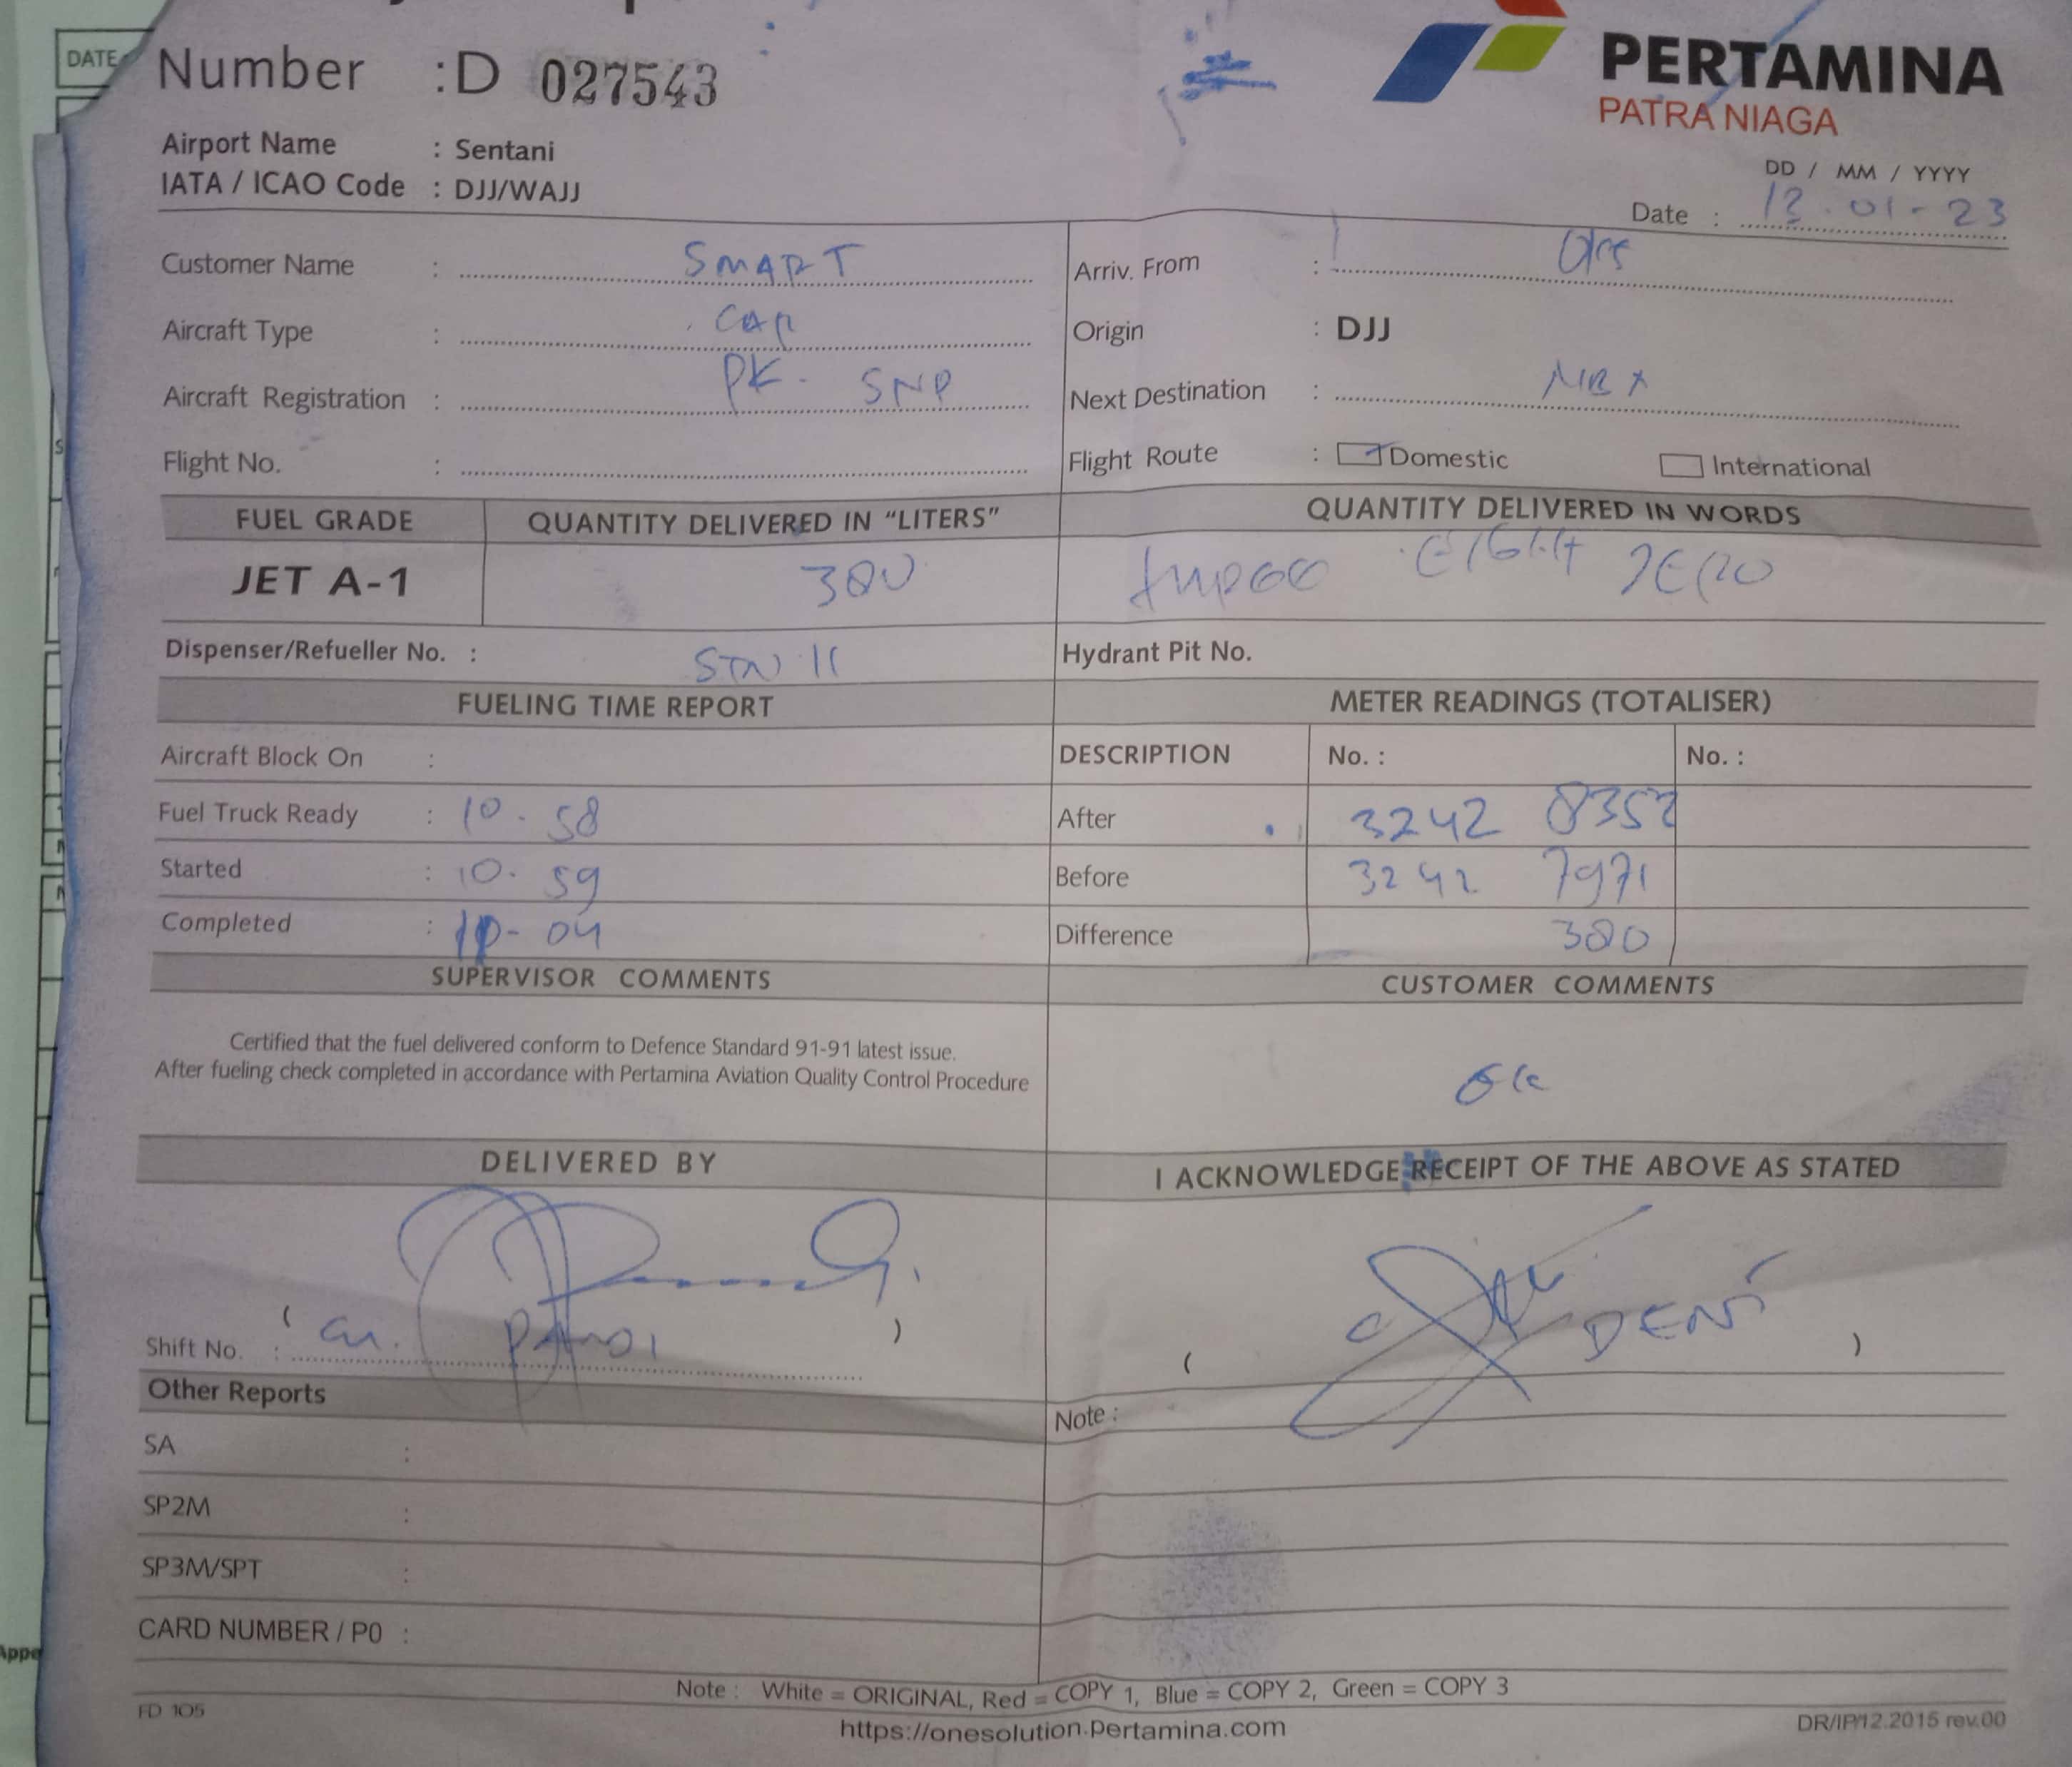 DATE
Number : D 027543
PERTAMINA
PATRA NIAGA
Airport Name : Sentani
IATA / ICAO Code : DJJ/WAJJ
DD / MM / YYYY
Date : 01-23
Customer Name : SMART
Arriv. From :
Aircraft Type : CAR
Origin : DJJ
Aircraft Registration : PK. SNP
Next Destination :
Flight No. :
Flight Route : Domestic International
FUEL GRADE QUANTITY DELIVERED IN “LITERS” QUANTITY DELIVERED IN WORDS
JET A-1 380 EIGHT ZERO
Dispenser/Refueller No. : STN 11
Hydrant Pit No.
FUELING TIME REPORT METER READINGS (TOTALISER)
Aircraft Block On :
DESCRIPTION No. : No. :
Fuel Truck Ready : 10. 58
After 3242 8352
Started : 10. 59
Before 3242 7971
Completed : 04
Difference 380
SUPERVISOR COMMENTS CUSTOMER COMMENTS
Certified that the fuel delivered conform to Defence Standard 91-91 latest issue.
After fueling check completed in accordance with Pertamina Aviation Quality Control Procedure
Ok
DELIVERED BY I ACKNOWLEDGE RECEIPT OF THE ABOVE AS STATED
Shift No. : ( )
( DENI )
Other Reports
Note :
SA :
SP2M :
SP3M/SPT :
CARD NUMBER / P0 :
Appe
Note : White = ORIGINAL, Red = COPY 1, Blue = COPY 2, Green = COPY 3
FD 105
https://onesolution.pertamina.com
DR/IP/12.2015 rev.00